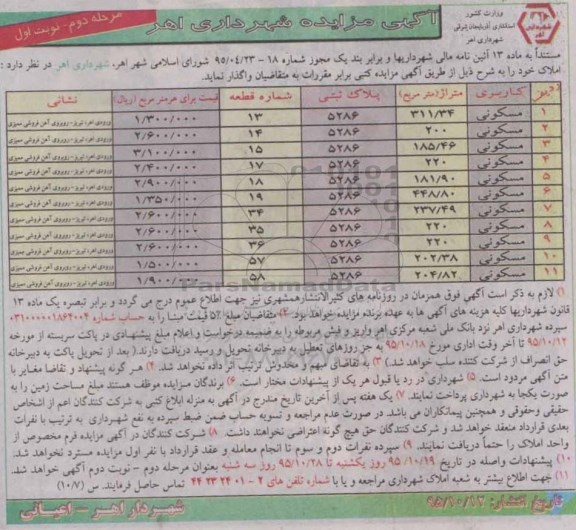 وزارت کشور
استانداری آذربایجان شرقی
شهرداری اهر
آگهی مزایده شهرداری اهر
مرحله دوم - نوبت اول
مستنداً به ماده ۱۳ آئین نامه مالی شهرداریها و برابر بند یک مجوز شماره ۱۸ - ۹۵/۰۴/۲۳ شورای اسلامی شهر اهر، شهرداری اهر در نظر دارد :
املاک خود را به شرح ذیل از طریق آگهی مزایده کتبی برابر مقررات به متقاضیان واگذار نماید.
ردیف کاربری متراژ(متر مربع) پلاک ثبتی شماره قطعه قیمت برای هرمتر مربع (ریال) نشانی
۱ مسکونی ۳۱۱/۳۴ ۵۲۸۶ ۱۳ ۱/۳۰۰/۰۰۰ ورودی اهر، تبریز - روبروی آهن فروشی سبزی
۲ مسکونی ۲۰۰ ۵۲۸۶ ۱۴ ۲/۶۰۰/۰۰۰ ورودی اهر، تبریز - روبروی آهن فروشی سبزی
۳ مسکونی ۱۸۵/۴۶ ۵۲۸۶ ۱۵ ۳/۱۰۰/۰۰۰ ورودی اهر، تبریز - روبروی آهن فروشی سبزی
۴ مسکونی ۲۲۰ ۵۲۸۶ ۱۷ ۲/۴۰۰/۰۰۰ ورودی اهر، تبریز - روبروی آهن فروشی سبزی
۵ مسکونی ۱۸۱/۹۰ ۵۲۸۶ ۱۸ ۲/۹۰۰/۰۰۰ ورودی اهر، تبریز - روبروی آهن فروشی سبزی
۶ مسکونی ۴۴۸/۸۰ ۵۲۸۶ ۱۹ ۱/۳۵۰/۰۰۰ ورودی اهر، تبریز - روبروی آهن فروشی سبزی
۷ مسکونی ۲۳۷/۴۹ ۵۲۸۶ ۳۴ ۲/۶۰۰/۰۰۰ ورودی اهر، تبریز - روبروی آهن فروشی سبزی
۸ مسکونی ۲۲۰ ۵۲۸۶ ۳۵ ۲/۶۰۰/۰۰۰ ورودی اهر، تبریز - روبروی آهن فروشی سبزی
۹ مسکونی ۲۲۰ ۵۲۸۶ ۳۶ ۲/۶۰۰/۰۰۰ ورودی اهر، تبریز - روبروی آهن فروشی سبزی
۱۰ مسکونی ۲۰۲/۳۸ ۵۲۸۶ ۵۷ ۱/۵۰۰/۰۰۰ ورودی اهر، تبریز - روبروی آهن فروشی سبزی
۱۱ مسکونی ۲۰۴/۸۲ ۵۲۸۶ ۵۸ ۱/۹۰۰/۰۰۰ ورودی اهر، تبریز - روبروی آهن فروشی سبزی
ParsNamadData
۱) لازم به ذکر است آگهی فوق همزمان در روزنامه های کثیرالانتشارهمشهری نیز جهت اطلاع عموم درج می گردد و برابر تبصره یک ماده ۱۳
قانون شهرداریها کلیه هزینه های آگهی ها به عهده برنده مزایده خواهد بود. ۲) متقاضیان مبلغ ۵٪ قیمت مبنا را به حساب شماره ۰۳۱۰۰۰۰۰۱۸۶۴۰۰۴
سپرده شهرداری اهر نزد بانک ملی شعبه مرکزی اهر واریز و فیش مربوطه را به ضمیمه درخواست و اعلام مبلغ پیشنهادی در پاکت سربسته از مورخه
۹۵/۱۰/۱۲ تا آخر وقت اداری مورخ ۹۵/۱۰/۱۸ به جز روزهای تعطیل به دبیرخانه تحویل و رسید دریافت دارند.( بعد از تحویل پاکت به دبیرخانه
حق انصراف از شرکت کننده سلب خواهد شد.) ۳) به تقاضای مبهم و مخدوش ترتیب اثر داده نخواهد شد. ۴) هر گونه پیشنهاد و تقاضا مغایر با
متن آگهی مردود است. ۵) شهرداری در رد یا قبول هر یک از پیشنهادات مختار است. ۶) برندگان مزایده موظف هستند مبلغ مساحت زمین را به
صورت یکجا به شهرداری پرداخت نمایند. ۷) یک هفته پس از آخرین تاریخ مندرج در آگهی به منزله ابلاغ کتبی به شرکت کنندگان اعم از اشخاص
حقیقی وحقوقی و همچنین پیمانکاران می باشد. در صورت عدم مراجعه و تسویه حساب ضمن ضبط سپرده به نفع شهرداری به ترتیب با نفرات
بعدی قرارداد منعقد خواهد شد و شرکت کنندگان حق هیچ گونه اعتراضی نخواهند داشت. ۸) شرکت کنندگان در آگهی مزایده فرم مخصوص از
واحد املاک را حتماً دریافت نمایند. ۹) سپرده نفرات دوم و سوم تا انجام معامله و عقد قرارداد با نفر اول مزایده مسترد نخواهد شد.
۱۰) پیشنهادات واصله در تاریخ ۹۵/۱۰/۱۹ روز یکشنبه تا ۹۵/۱۰/۲۸ روز سه شنبه بعنوان مرحله دوم - نوبت دوم آگهی خواهد شد.
۱۱) جهت اطلاع بیشتر به شعبه املاک شهرداری مراجعه و یا با شماره تلفن های ۲ - ۴۴۲۳۲۴۰۱ تماس حاصل فرمایند. س (۱۰/۷)
تاریخ انتشار: ۹۵/۱۰/۱۲
شهردار اهر - اعیانی